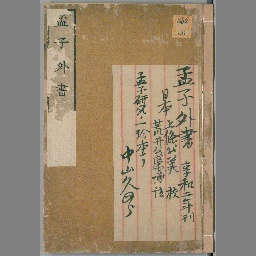 孟子外書
孟子外書 享和二年刊
日本
上條公美 校
荒井公廉 音註
孟子研究ノ一珍本ナリ
中山久四郎